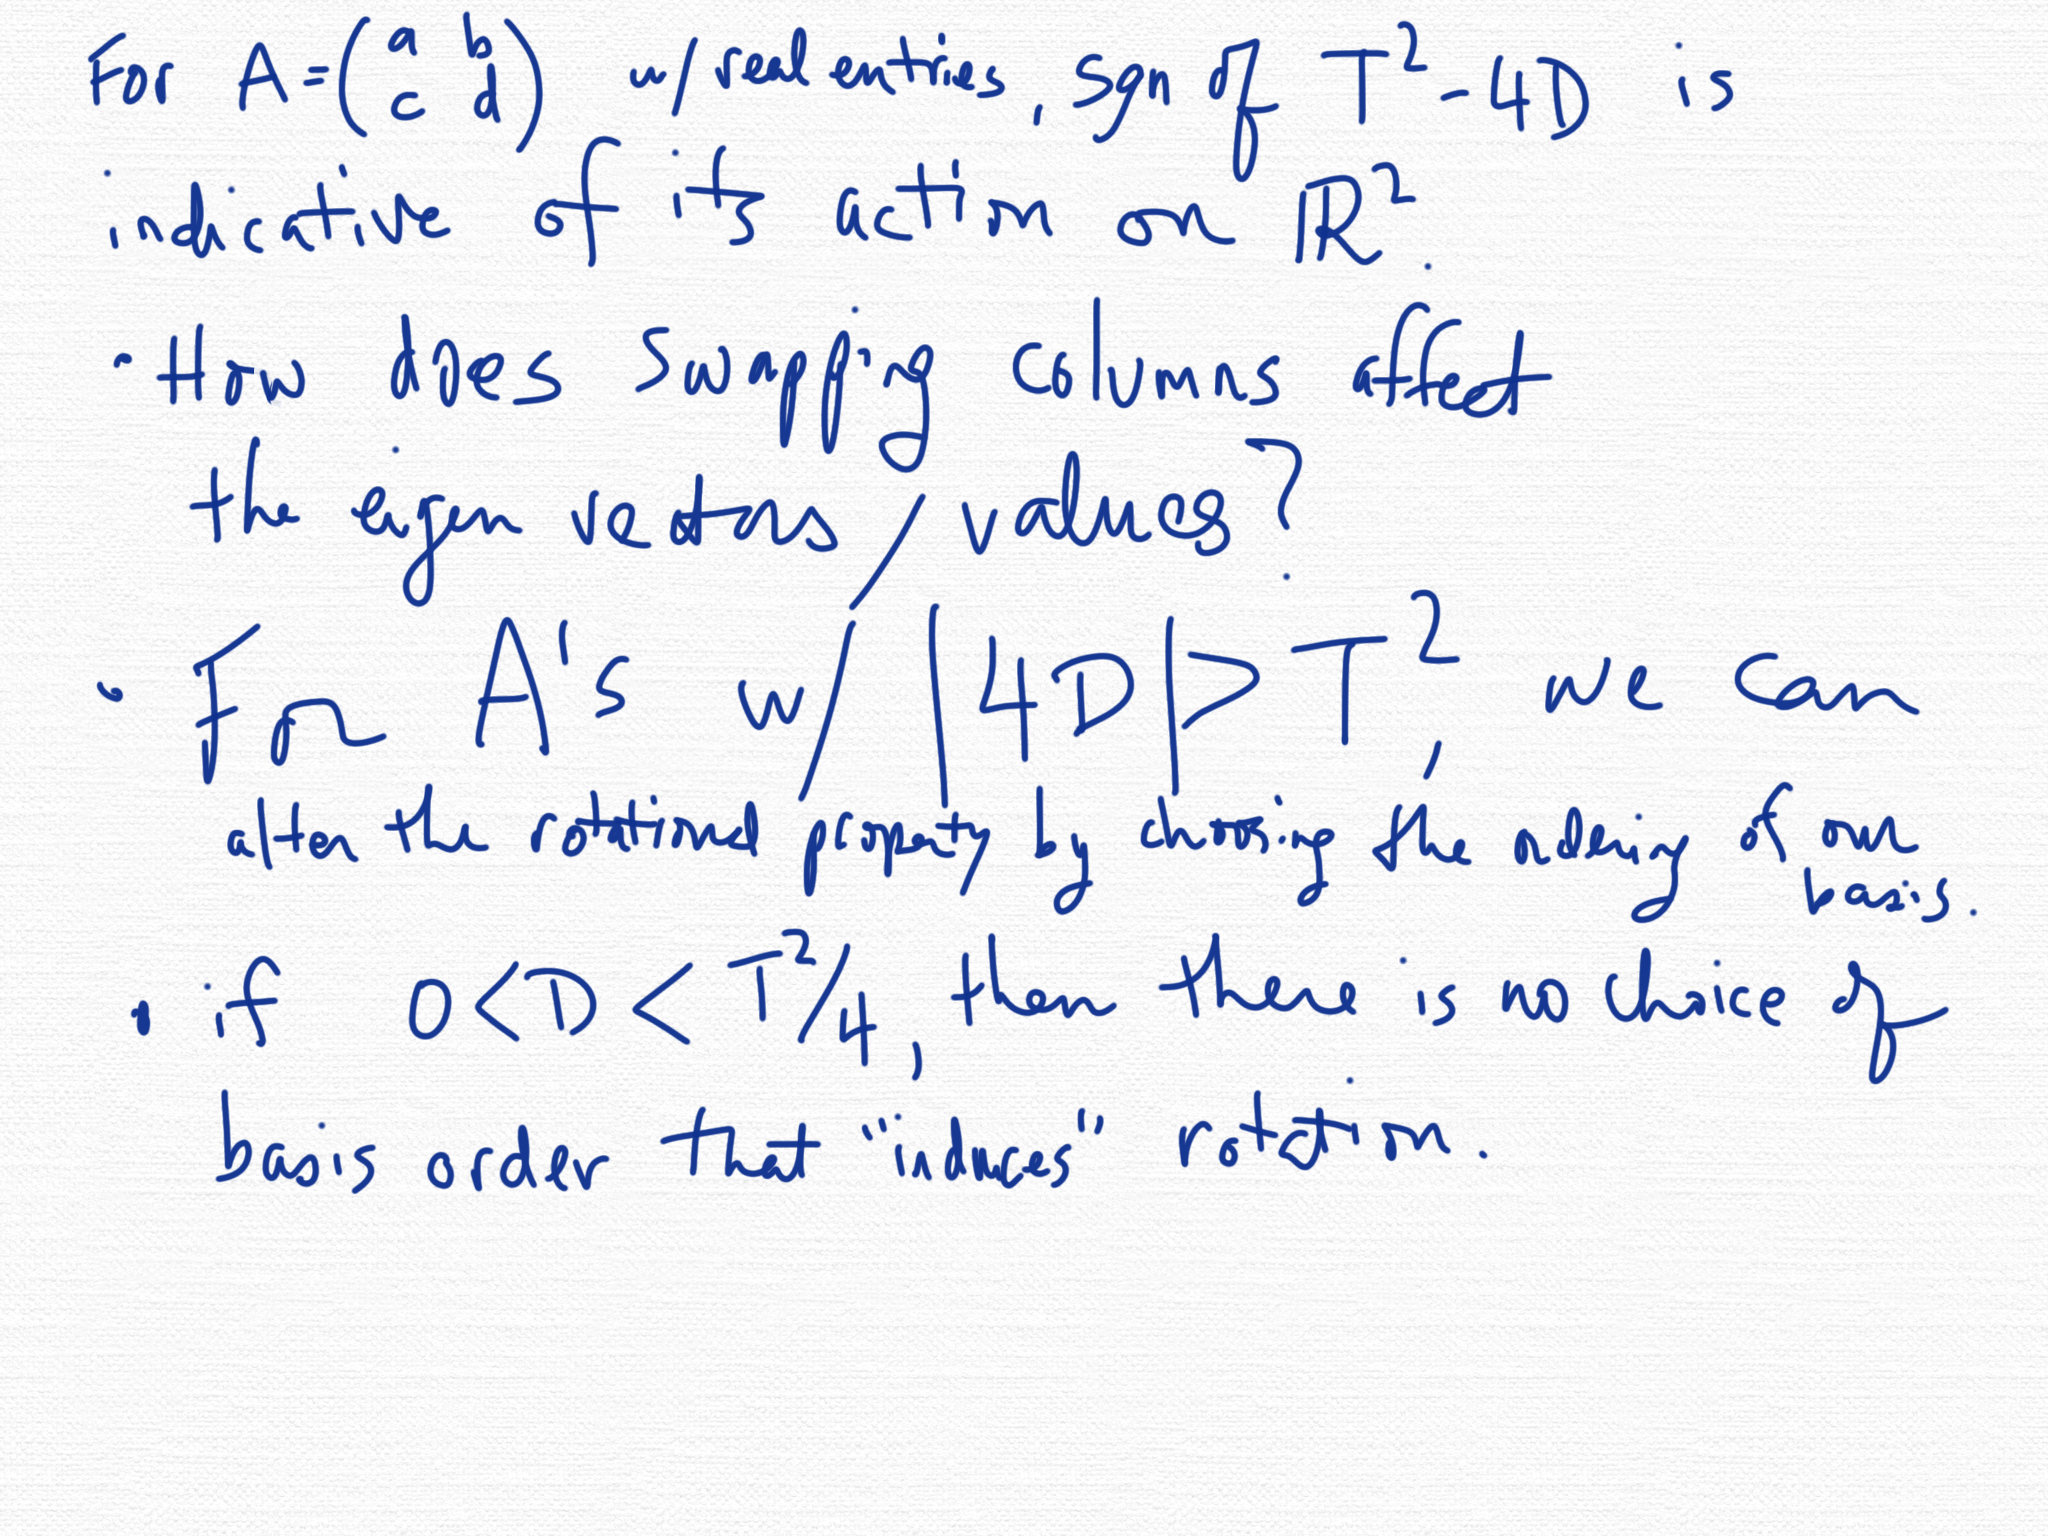 For A = (a b
c d) w/ real entries, sgn of T² - 4D is
indicative of its action on ℝ².
· How does swapping columns affect
the eigen vectors / values?
· For A's w/ |4D| > T², we can
alter the rotational property by choosing the ordering of our
basis.
· if 0 < D < T²/4, then there is no choice of
basis order that "induces" rotation.